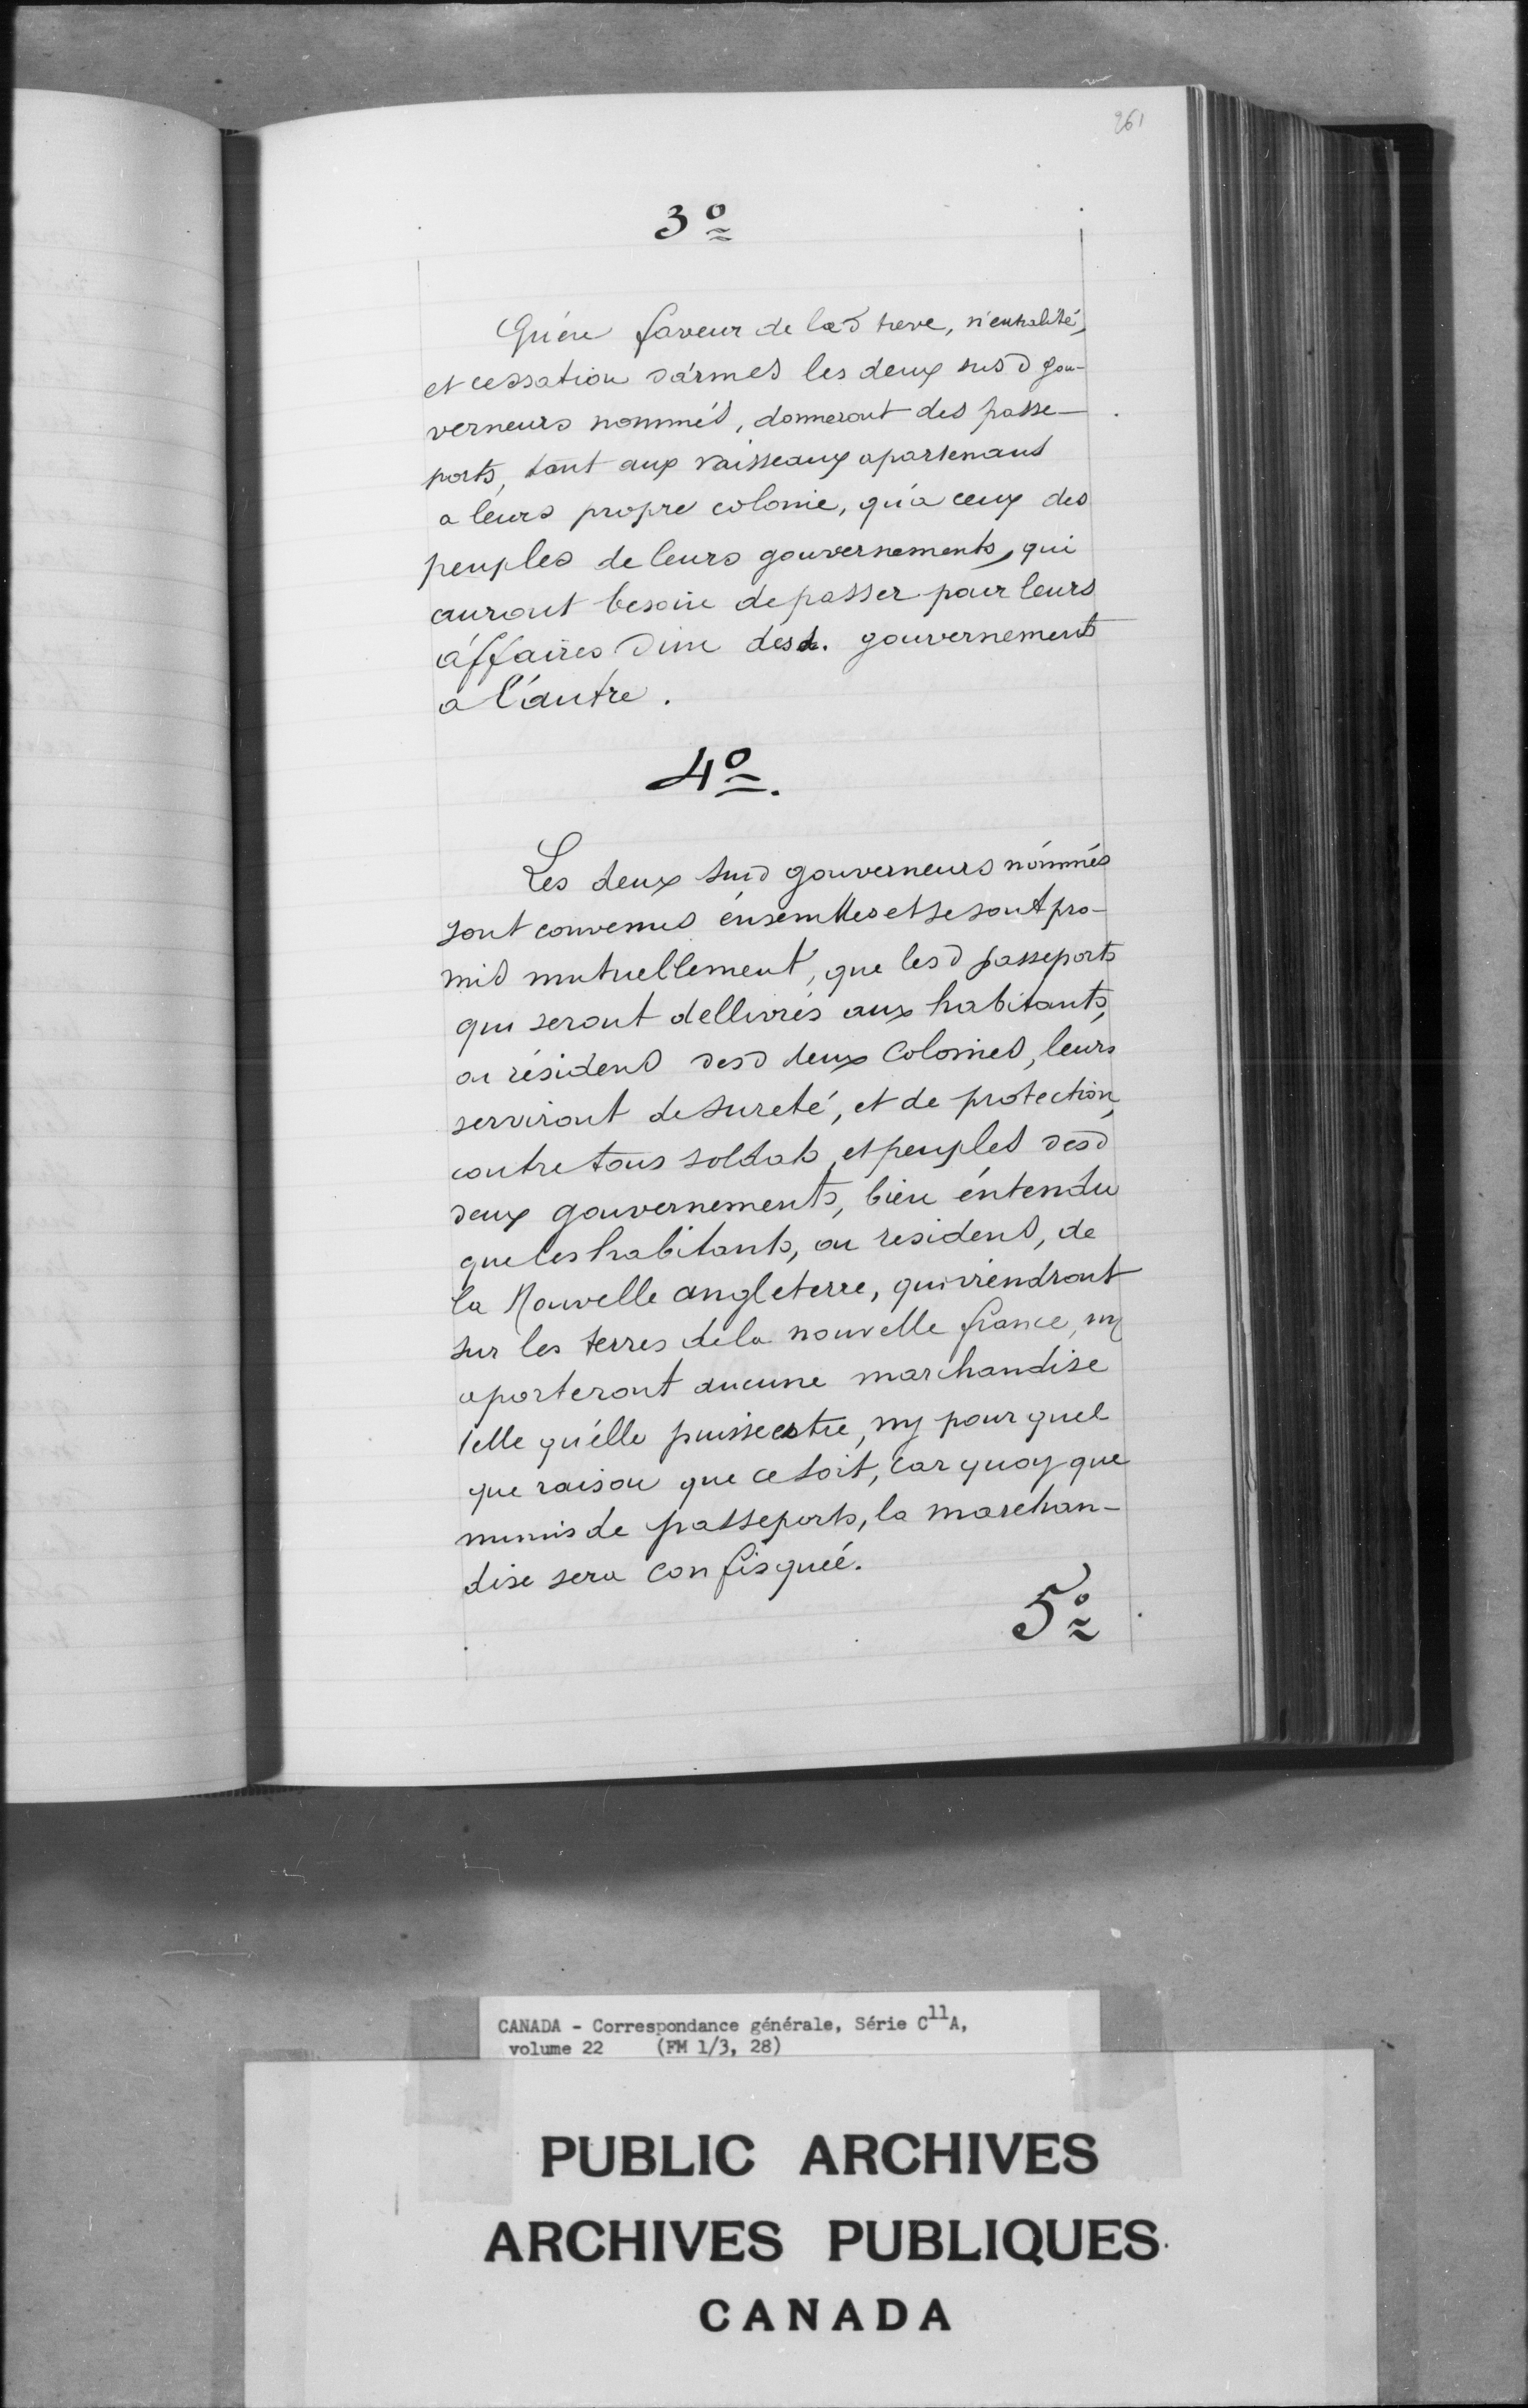 261
3º
Qu'én faveur de lad treve, n'eutralité,
et cessation d'armes les deux susd gou-
verneurs nommés, donneront des passe-
ports, tant aux vaisseaux apartenans
a leurs propre colonie, qu'a ceux des
peuples de leurs gouvernements, qui
auront besoin de passer pour leurs
áffaires d'un desd. gouvernements
a l'áutre.
4º.
Les deux susd gouverneurs nómmés
sont convenus énsembles et se sont pro-
mis mutuellement, que lesd passeports
qui seront dellivrés aux habitants,
ou résidens desd deux Colonies, leurs
serviront de sureté, et de protection,
contre tous soldats, et peuples desd
deux gouvernements, bien éntendu
que les habitants, ou residens, de
la Nouvelle angleterre, qui viendront
sur les terres de la nouvelle france, ny
aporteront aucune marchandise
telle qu'élle puisse estre, ny pour quel
que raison que ce soit, car quoy que
munis de passeports, la marchan-
dise sera confisquéé.
5º
CANADA - Correspondance générale, Série C11A,
volume 22 (FM 1/3, 28)
PUBLIC ARCHIVES
ARCHIVES PUBLIQUES
CANADA